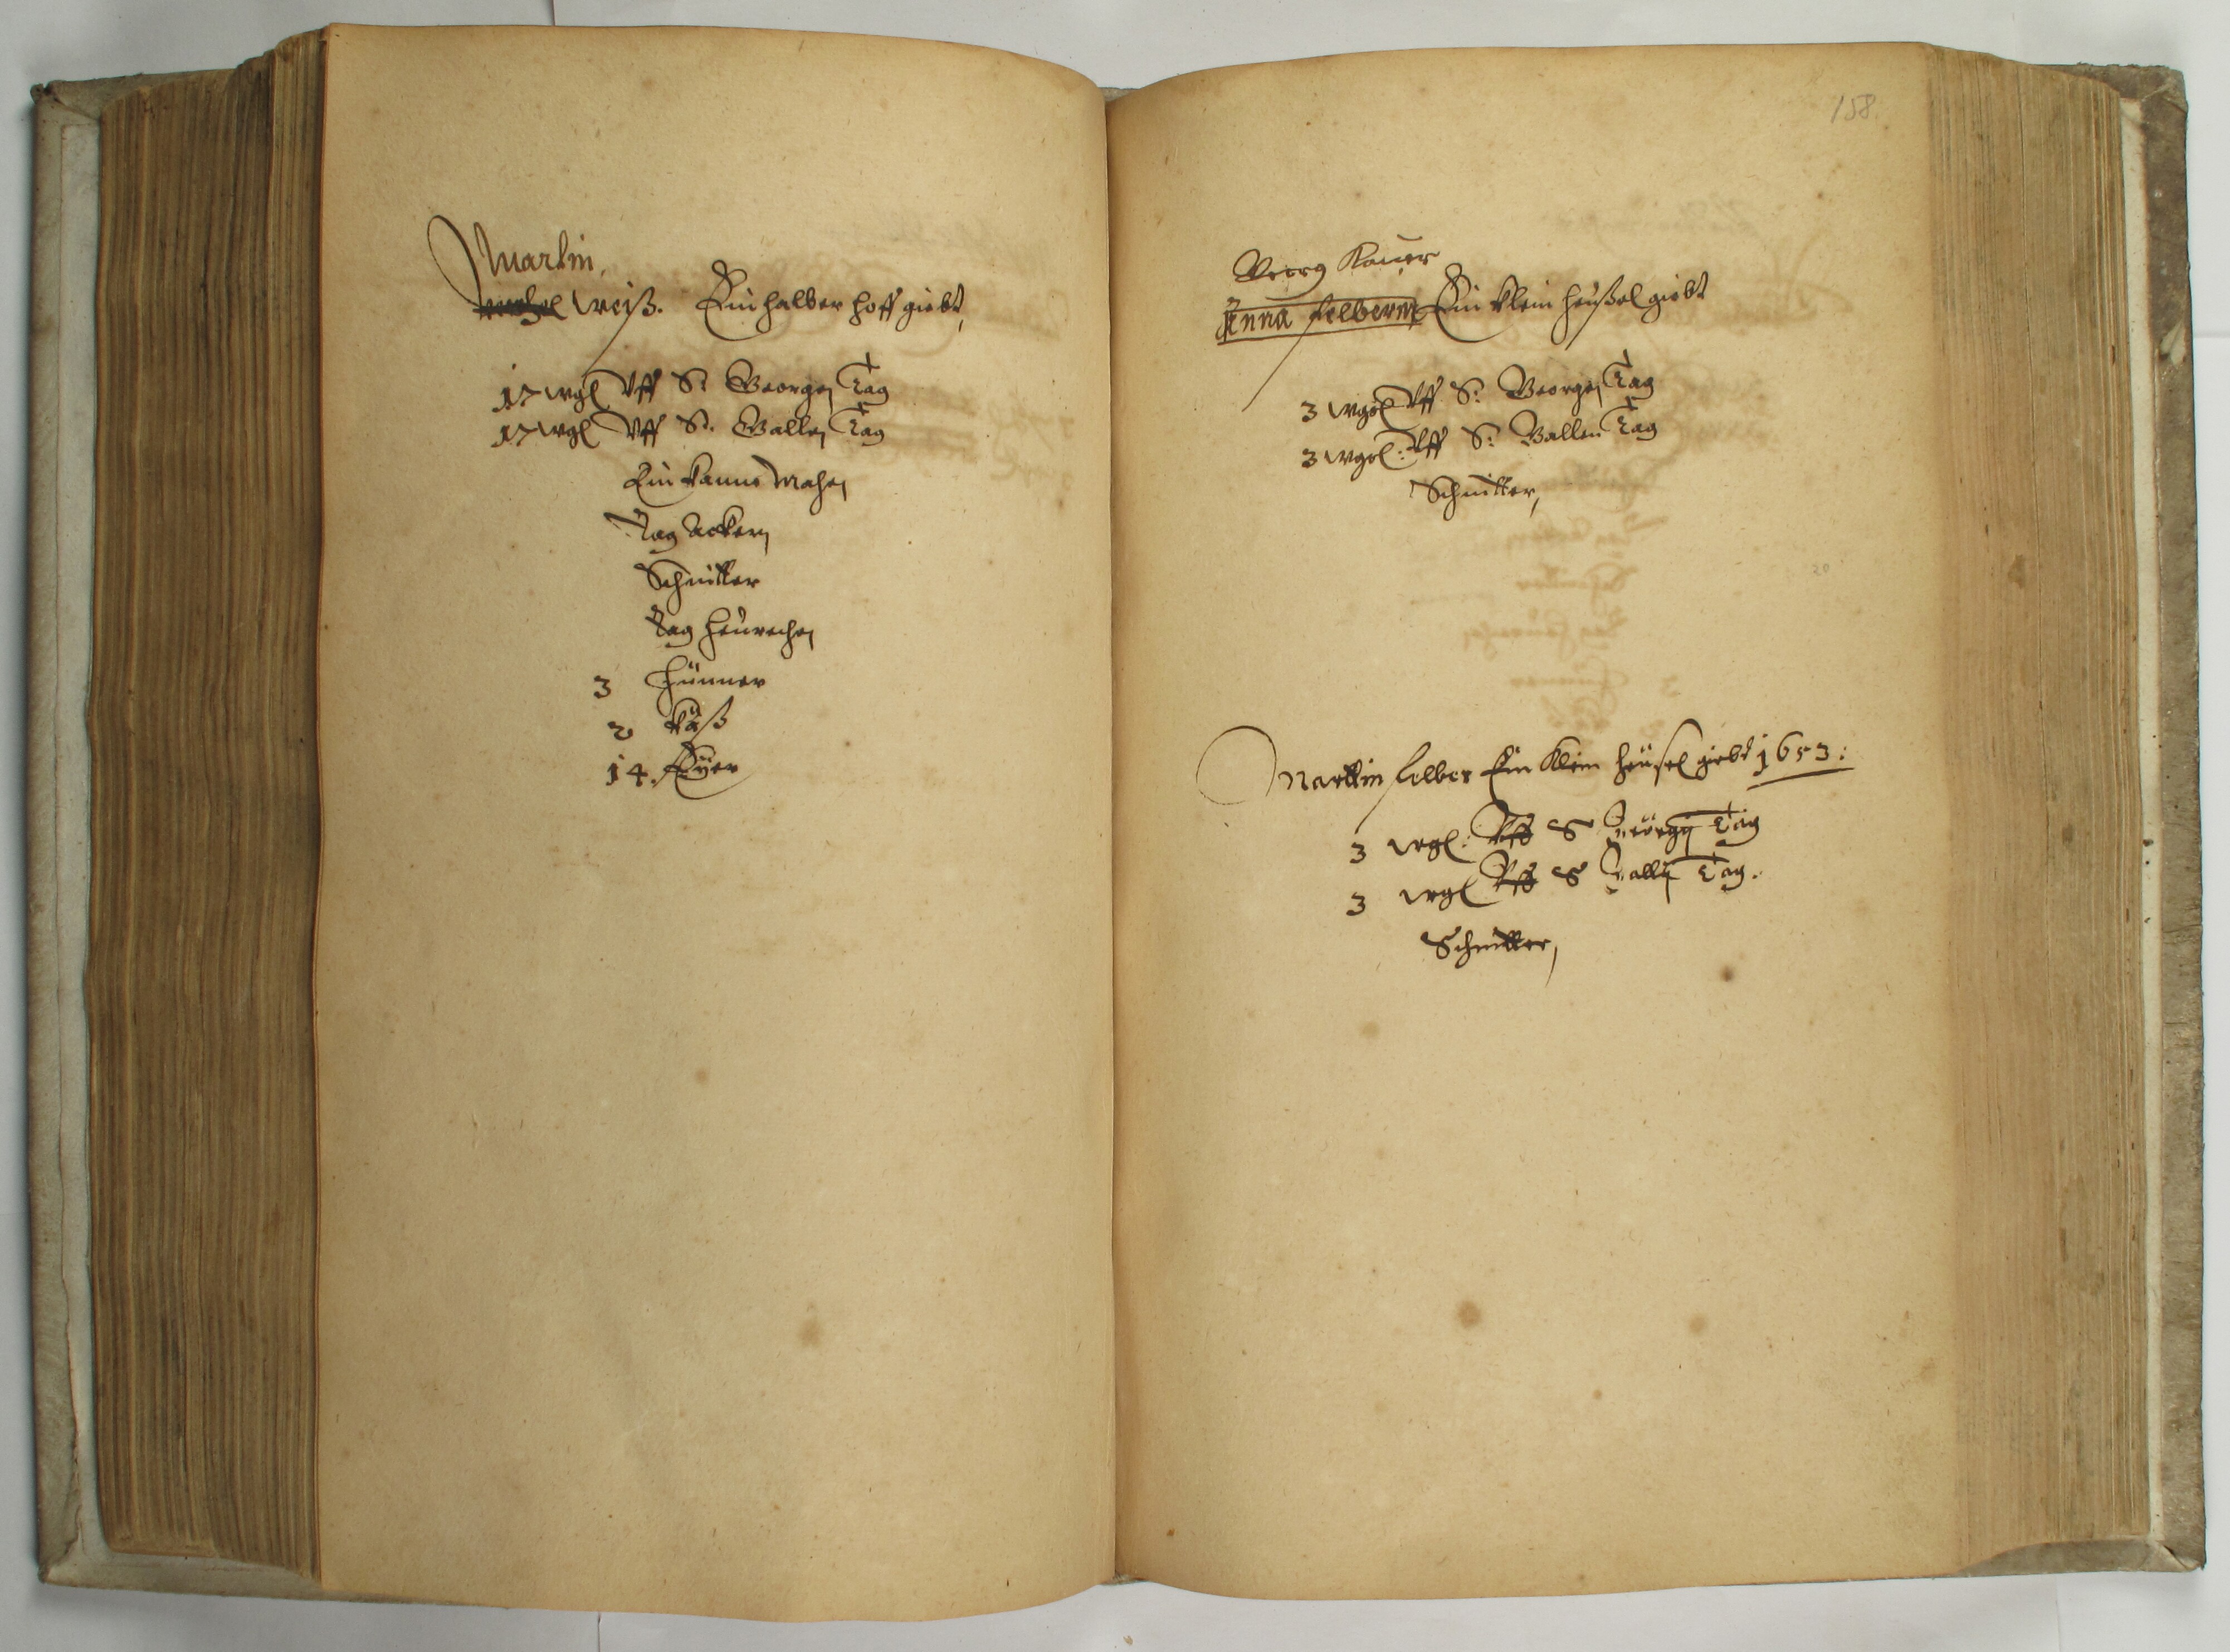 Martin
Weiß. Ein halber Hoff giebt,
17 wgl Vff S: Georgen Tag
17 wgl Vff S: Gallen Tag
Ein Kanne Mahen
Tag Ackern
Schnitter
Tag Heurechen
3 Hünner
2 Käß
14. Eÿer
158.
Georg Kauer
Anna Felberin Ein klein Heußel giebt
3 wgl Vff S: Georgen Tag
3 wgl: Vff S: Gallen Tag
Schnitter,
20
Marttin Felber Ein klein Heüsel giebt 1653:
3 wgl: Vff S Geörgÿ Tag
3 wgl Vff S Gallÿ Tag.
Schnitter,